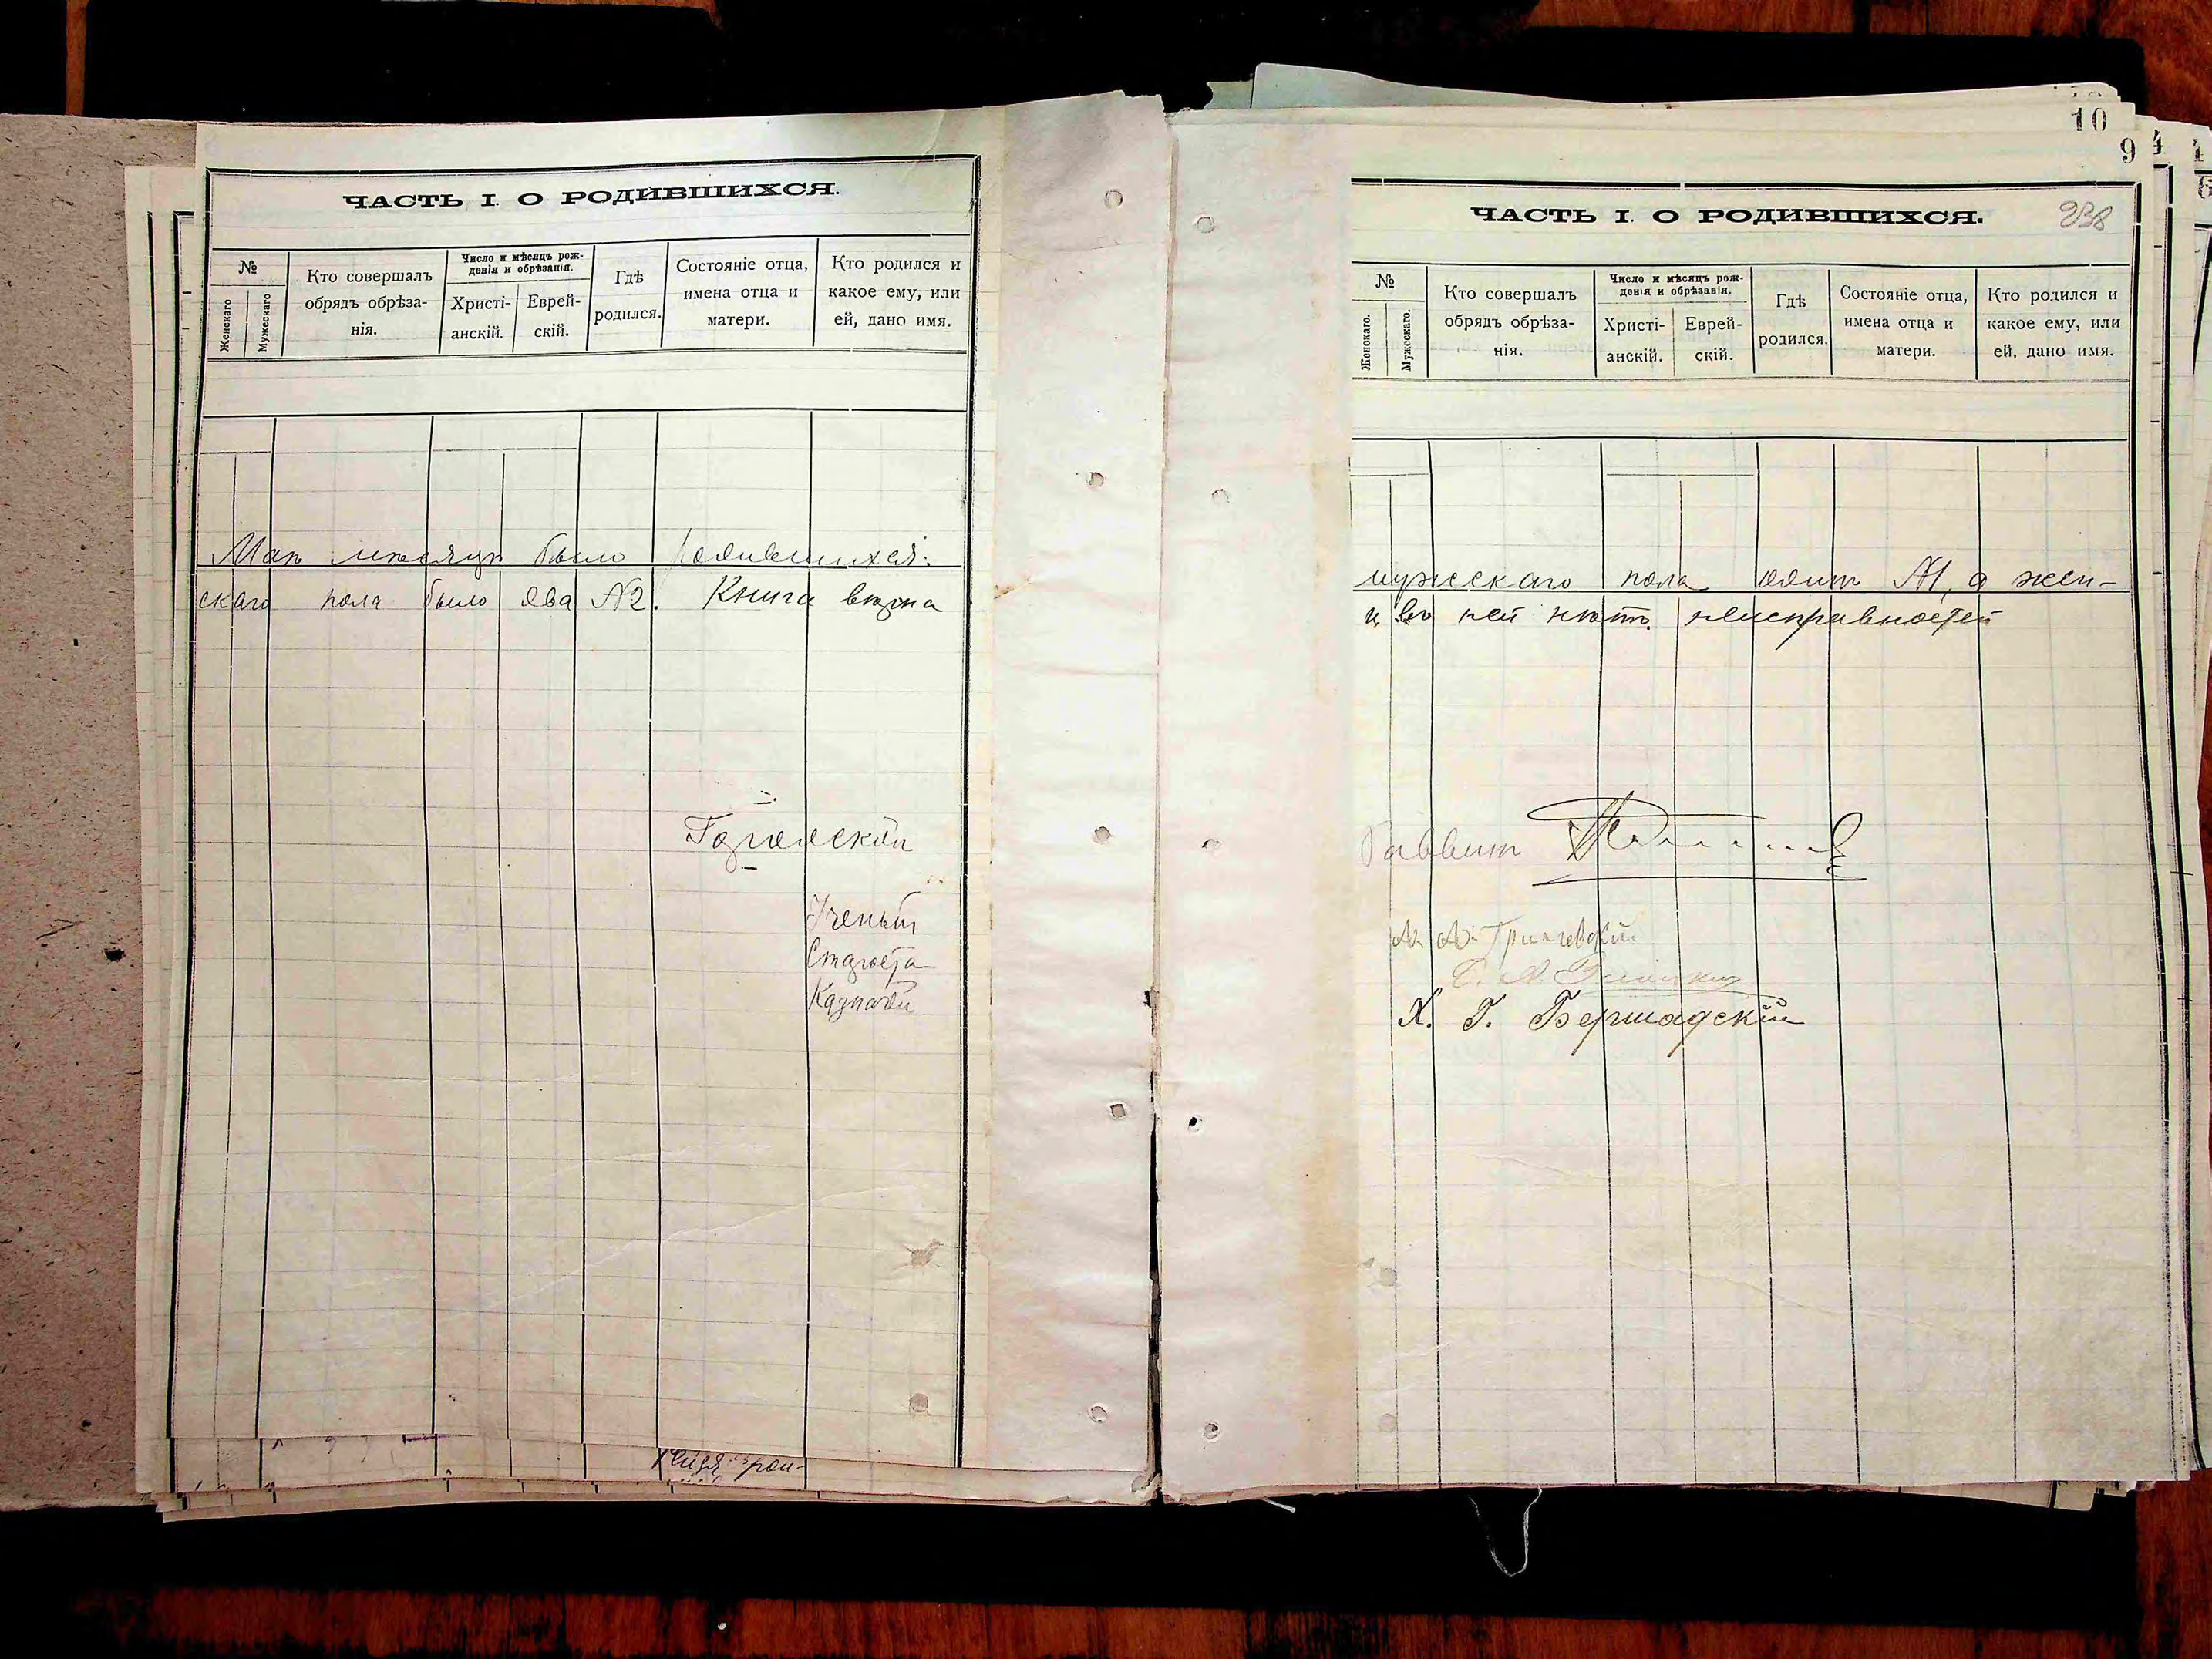 ЧАСТЬ I. О РОДИВШИХСЯ.
№
Женскаго
Мужескаго
Кто совершалъ
обрядъ обрѣза-
нія.
Число и мѣсяцъ рож-
денія и обрѣзанія.
Христі-
анскій.
Еврей-
скій.
Гдѣ
родился.
Состояніе отца,
имена отца и
матери.
Кто родился и
какое ему, или
ей, дано имя.
Маѣ мѣсяцѣ было родившихся:
скаго пола было два №2. Книга вѣрна
Ученый
Староста
Казначей
10
9
238
ЧАСТЬ I. О РОДИВШИХСЯ.
№
Женскаго.
Мужескаго.
Кто совершалъ
обрядъ обрѣза-
нія.
Число и мѣсяцъ рож-
денія и обрѣзанія.
Христі-
анскій.
Еврей-
скій.
Гдѣ
родился.
Состояніе отца,
имена отца и
матери.
Кто родился и
какое ему, или
ей, дано имя.
мужескаго пола одинъ №1, а жен-
и въ ней нѣтъ неисправностей
Раввинъ
Х. Г. Бершадскій